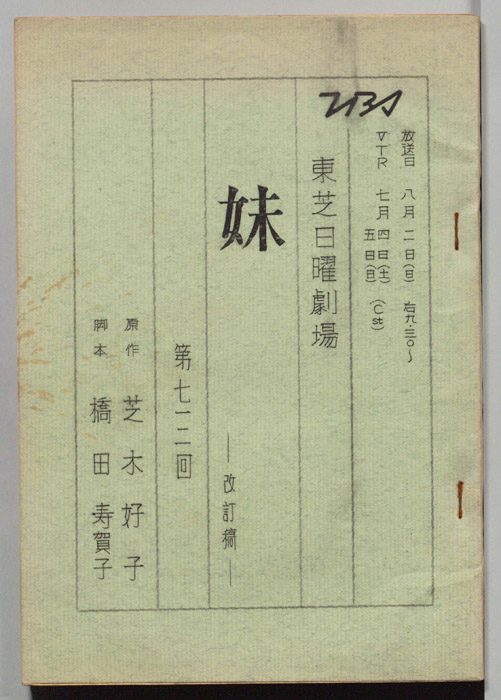 TBS
放送日 八月二日(日) 后九・三〇～
VTR 七月四日(土)
五日(日) (Cst)
東芝日曜劇場
妹
―改訂稿―
第七一二回
原作 芝木好子
脚本 橋田寿賀子